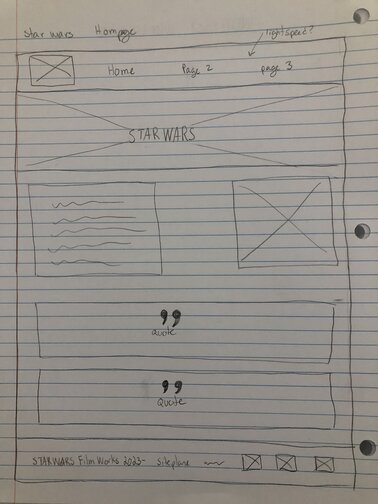 Star Wars Hompage
lightspeed?
Home Page 2 page 3
STAR WARS
quote
Quote
STAR WARS Film Works 2023-